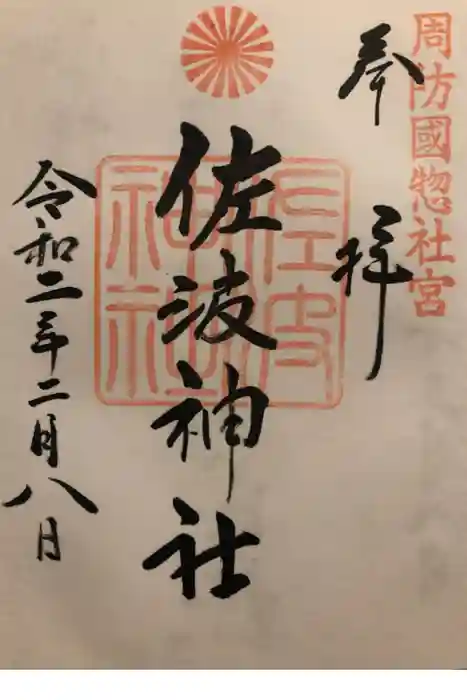 周防國惣社宮
奉拝
佐波神社
佐波神社
令和二年二月八日